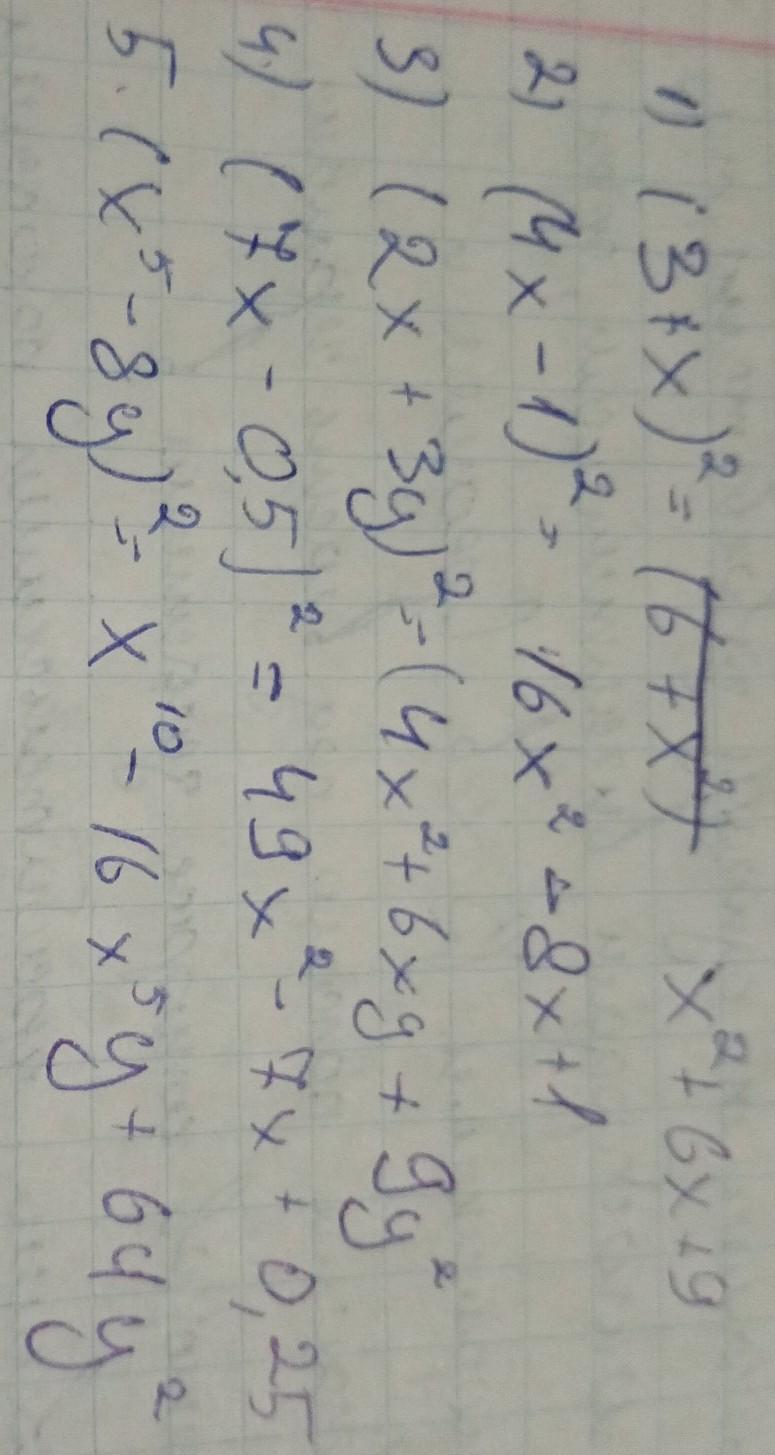 1) (3+x)² = (6+x²) x²+6x+9
2) (4x-1)² = 16x²-8x+1
3) (2x+3y)² = (4x²+6xy+9y²
4) (7x-0,5)² = 49x²-7x+0,25
5. (x⁵-8y)² = x¹⁰-16x⁵y+64y²